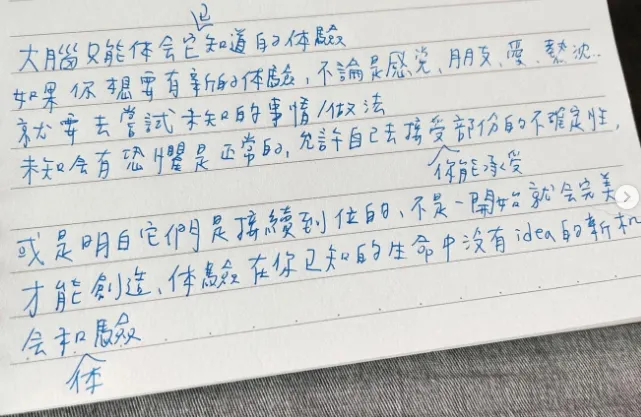 大腦只能体会它已知道的体驗
如果你想要有新的体驗,不論是感覚、朋友、愛、熱沈..
就要去嘗試未知的事情/做法
未知会有恐懼是正常的,允許自己去接受你能承受部份的不確定性,
或是明白它們是接續到位的、不是一開始就会完美
才能創造、体驗在你已知的生命中没有idea的新机
会和体驗